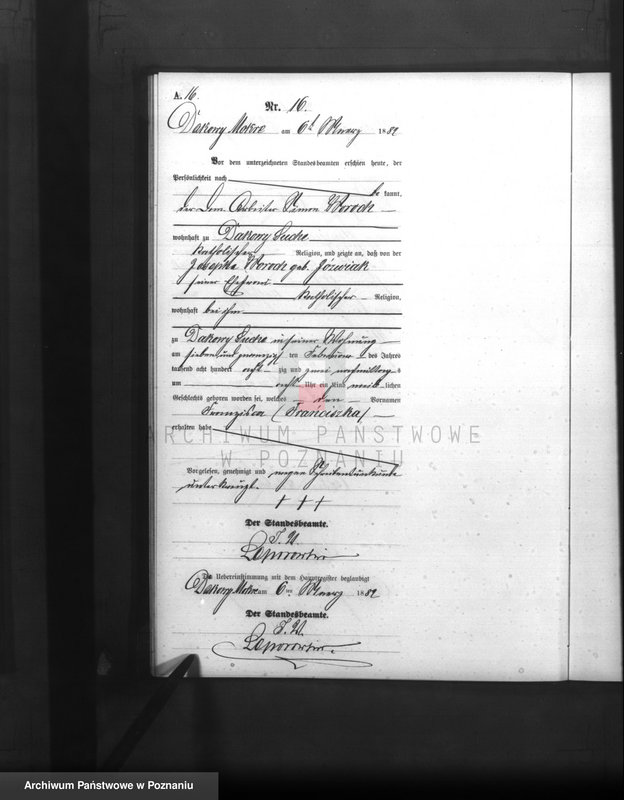 A. 16.
Nr. 16.
Dakowy Mokre am 6t März 1882
Vor dem unterzeichneten Standesbeamten erschien heute, der
Persönlichkeit nach be kannt,
der Dom. Arbeiter Simon Woroch
wohnhaft zu Dakowy Suche
katholischer Religion, und zeigte an, daß von der
Josepha Woroch geb. Jóźwiak
seiner Ehefrau
katholischer Religion,
wohnhaft bei ihm
zu Dakowy Suche in seiner Wohnung
am sieben und zwanzigsten ten Februar des Jahres
tausend acht hundert acht zig und zwei nachmittags
um acht Uhr ein Kind weib lichen
Geschlechts geboren worden sei, welches den Vornamen
Franziska (Franciszka)
erhalten habe
ARCHIWUM PAŃSTWOWE
W POZNANIU
Vorgelesen, genehmigt und wegen Schreibensunkunde
unterkreuzt.
+ + +
Der Standesbeamte.
Die Uebereinstimmung mit dem Hauptregister beglaubigt
Dakowy Mokre am 6ten März 1882
Der Standesbeamte.
Archiwum Państwowe w Poznaniu